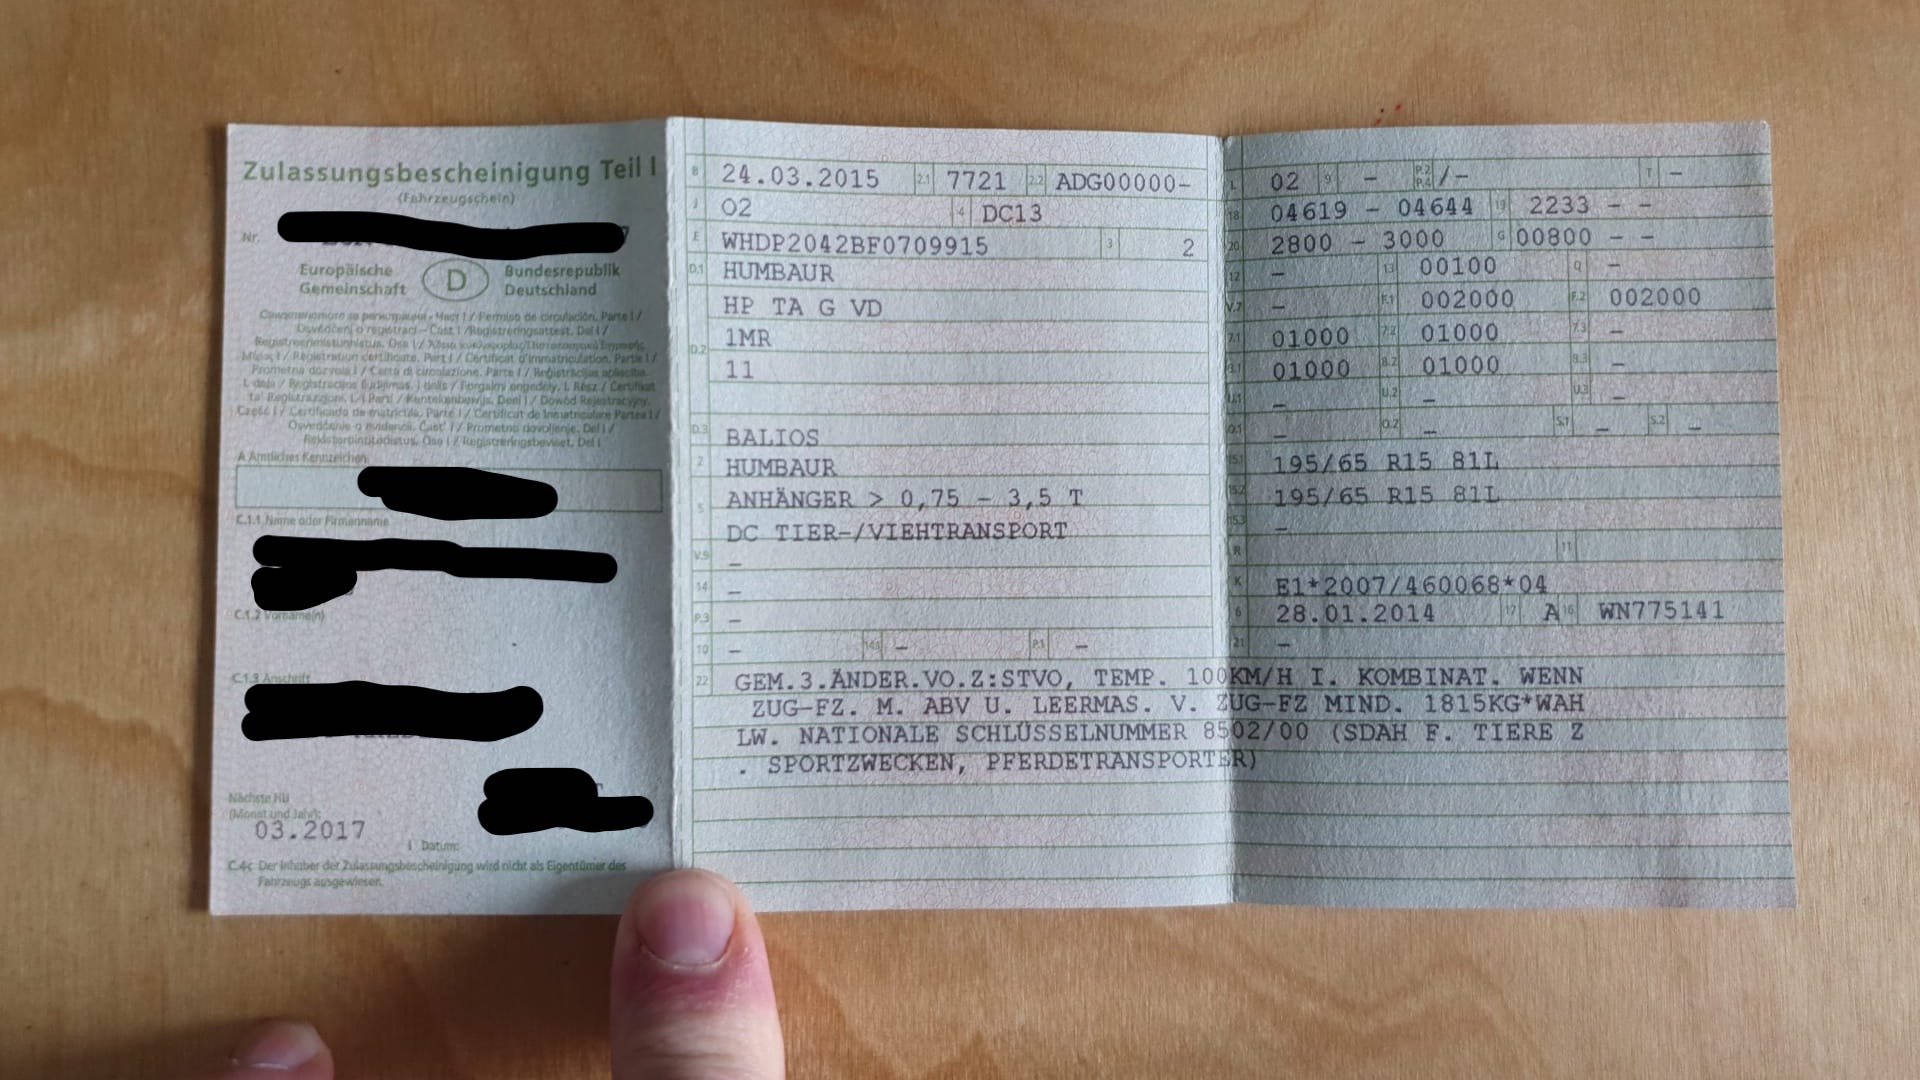 Zulassungsbescheinigung Teil I
(Fahrzeugschein)
Nr.
Europäische Gemeinschaft
D
Bundesrepublik Deutschland
A Amtliches Kennzeichen
C.1.1 Name oder Firmenname
C.1.2 Vorname(n)
C.1.3 Anschrift
Nächste HU
(Monat und Jahr):
03.2017
Datum:
C.4c Der Inhaber der Zulassungsbescheinigung wird nicht als Eigentümer des
Fahrzeugs ausgewiesen.
B 24.03.2015 2.1 7721 2.2 ADG00000-
J O2 4 DC13
E WHDP2042BF0709915 3 2
D.1 HUMBAUR
HP TA G VD
D.2 1MR
11
D.3 BALIOS
2 HUMBAUR
5 ANHÄNGER > 0,75 - 3,5 T
DC TIER-/VIEHTRANSPORT
V.9 -
14 -
P.3 -
10 - 14.1 - P.1 -
L 02 9 - P.2 P.4 /- T -
18 04619 - 04644 19 2233 - -
20 2800 - 3000 G 00800 - -
12 - 13 00100 Q -
V.7 - F.1 002000 F.2 002000
7.1 01000 7.2 01000 7.3 -
8.1 01000 8.2 01000 8.3 -
U.1 - U.2 - U.3 -
O.1 - O.2 - S.1 - S.2 -
15.1 195/65 R15 81L
15.2 195/65 R15 81L
15.3 -
R 11
K E1*2007/460068*04
6 28.01.2014 17 A 16 WN775141
21 -
22 GEM.3.ÄNDER.VO.Z:STVO, TEMP. 100KM/H I. KOMBINAT. WENN
ZUG-FZ. M. ABV U. LEERMAS. V. ZUG-FZ MIND. 1815KG*WAH
LW. NATIONALE SCHLÜSSELNUMMER 8502/00 (SDAH F. TIERE Z
. SPORTZWECKEN, PFERDETRANSPORTER)